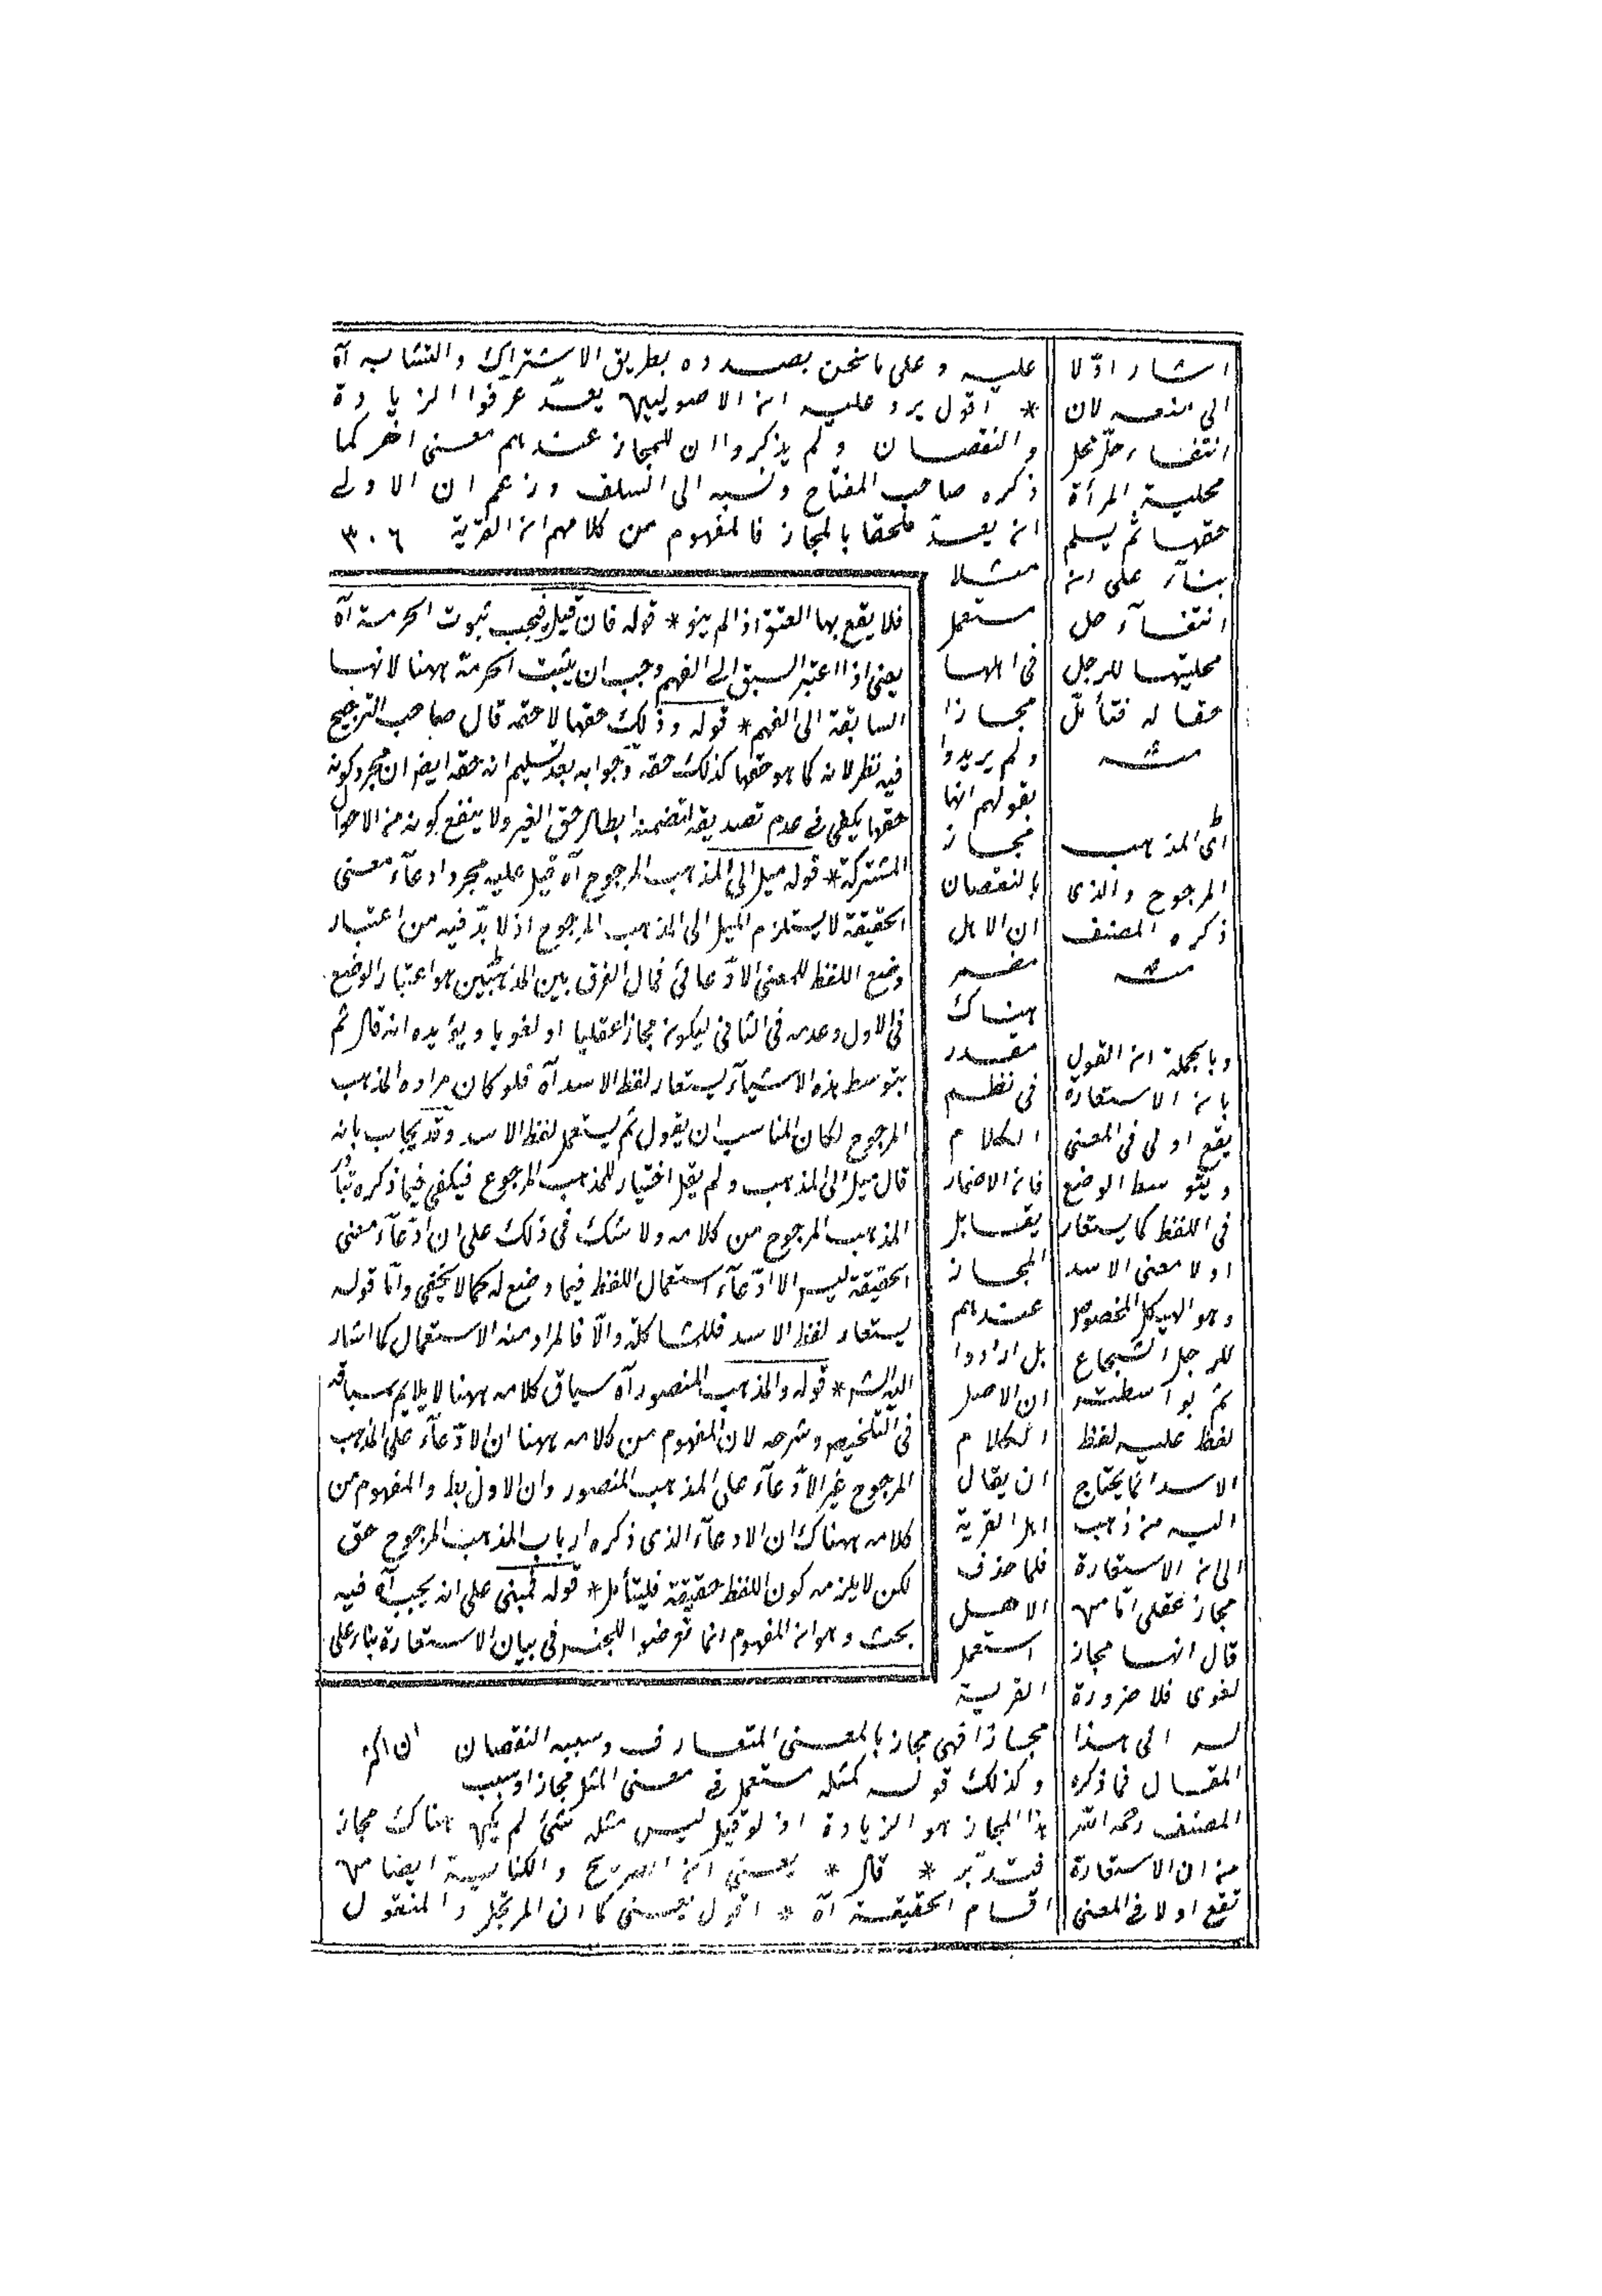 عليه و على ما نحن بصدده بطريق الاشتراك والتشابه آه
* اقول يرد عليه ان الاصوليين بعد عرفوا الزيادة
والنقصان ولم يذكروا ان للمجاز عندهم معنى اخر كما
ذكره صاحب المفتاح ونسبه الى السلف وزعم ان الاولى
ان يعد ملحقا بالمجاز فالمفهوم من كلامهم ان القرية ٣٠٦
مثلا
مستعمل
فى اهلها
مجازا
ولم يريدوا
بقولهم انها
مجاز
بالنقصان
ان الاهل
مضمر
هناك
مقدر
فى نظم
الكلام
فان الاضمار
يقابل
المجاز
عندهم
بل ارادوا
ان الاصل
الكلام
ان يقال
اهل القرية
فلما حذف
الاهل
استعمل
القرية
مجازا فهى مجاز بالمعنى المتعارف وسببه النقصان
وكذلك قوله كمثله مستعمل فى معنى المثل مجازا وسبب
هذا المجاز هو الزيادة اذ لو قيل ليس مثله شئ لم يكن هناك مجاز
فتدبر * قال * يعنى ان الصريح والكناية ايضا من
اقسام الحقيقة آه * اقول يعنى كما ان المرتجل والمنقول
فلا يقع بها العتق اذا لم ينو * قوله فان قيل فيجب ثبوت الحرمة آه
يعنى اذا اعتبر السبق الى الفهم وجب ان يثبت الحرمة ههنا لانها
السابقة الى الفهم * قوله وذلك حقها لا حقه قال صاحب الترجيح
فيه نظر لانه كما هو حقها كذلك حقه وجوابه بعد تسليم انه حقه ايضا ان مجرد كونه
حقها يكفى فى عدم تصديقه لتضمنه ابطال حق الغير ولا ينفع كونه من الاحوال
المشتركة * قوله ميل الى المذهب المرجوح آه قيل عليه مجرد ادعاء معنى
الحقيقة لا يستلزم الميل الى المذهب المرجوح اذ لا بد فيه من اعتبار
وضع اللفظ للمعنى الادعائى فمال الفرق بين المذهبين هو اعتبار الوضع
فى الاول وعدمه فى الثانى ليكون مجازا عقليا او لغويا ويؤيده انه قال ثم
بتوسط هذه الاشياء يستعار لفظ الاسد آه فلو كان مراده المذهب
المرجوح لكان المناسب ان يقول ثم يستعمل لفظ الاسد وقد يجاب بانه
قال ميل الى المذهب ولم يقل اختيار للمذهب المرجوح فيكفى فيما ذكره
المذهب المرجوح من كلامه ولا شك فى ذلك على ان ادعاء معنى
الحقيقة ليس الا ادعاء استعمال اللفظ فيما وضع له كما لا يخفى واما قوله
يستعار لفظ الاسد فللمشاكلة والا فالمراد منه الاستعمال كما اشار
اليه الش * قوله والمذهب المنصور آه سياق كلامه ههنا لا يلايم سياقه
فى التلخيص وشرحه لان المفهوم من كلامه ههنا ان الادعاء على المذهب
المرجوح غير الادعاء على المذهب المنصور وان الاول بط والمفهوم من
كلامه هناك ان الادعاء الذى ذكره ارباب المذهب المرجوح حق
لكن لا يلزمه كون اللفظ حقيقة فليتأمل * قوله فمبنى على انه يجب آه فيه
بحث وهو ان المفهوم انما تعرضوا للجنس فى بيان الاستعارة بناء على
اشار اولا
الى منعه لان
انتفاء حل محل
محلية المرأة
حقها ثم يسلم
بناء على ان
انتفاء حل
محليتها للرجل
حقا له فتأمل
منه
اى المذهب
المرجوح والذى
ذكره المصنف
منه
وبالجملة ان القول
بان الاستعارة
يقع اولى فى المعنى
ويتوسط الوضع
فى اللفظ كما يستعار
اولا معنى الاسد
وهو الهيكل المخصوص
للرجل الشجاع
ثم بواسطته
لفظ عليه لفظ
الاسد انما يحتاج
اليه من ذهب
الى ان الاستعارة
مجاز عقلى اما من
قال انها مجاز
لغوى فلا ضرورة
له الى هذا
المقال فما ذكره
المصنف رحمه الله
من ان الاستعارة
تقع اولا فى المعنى